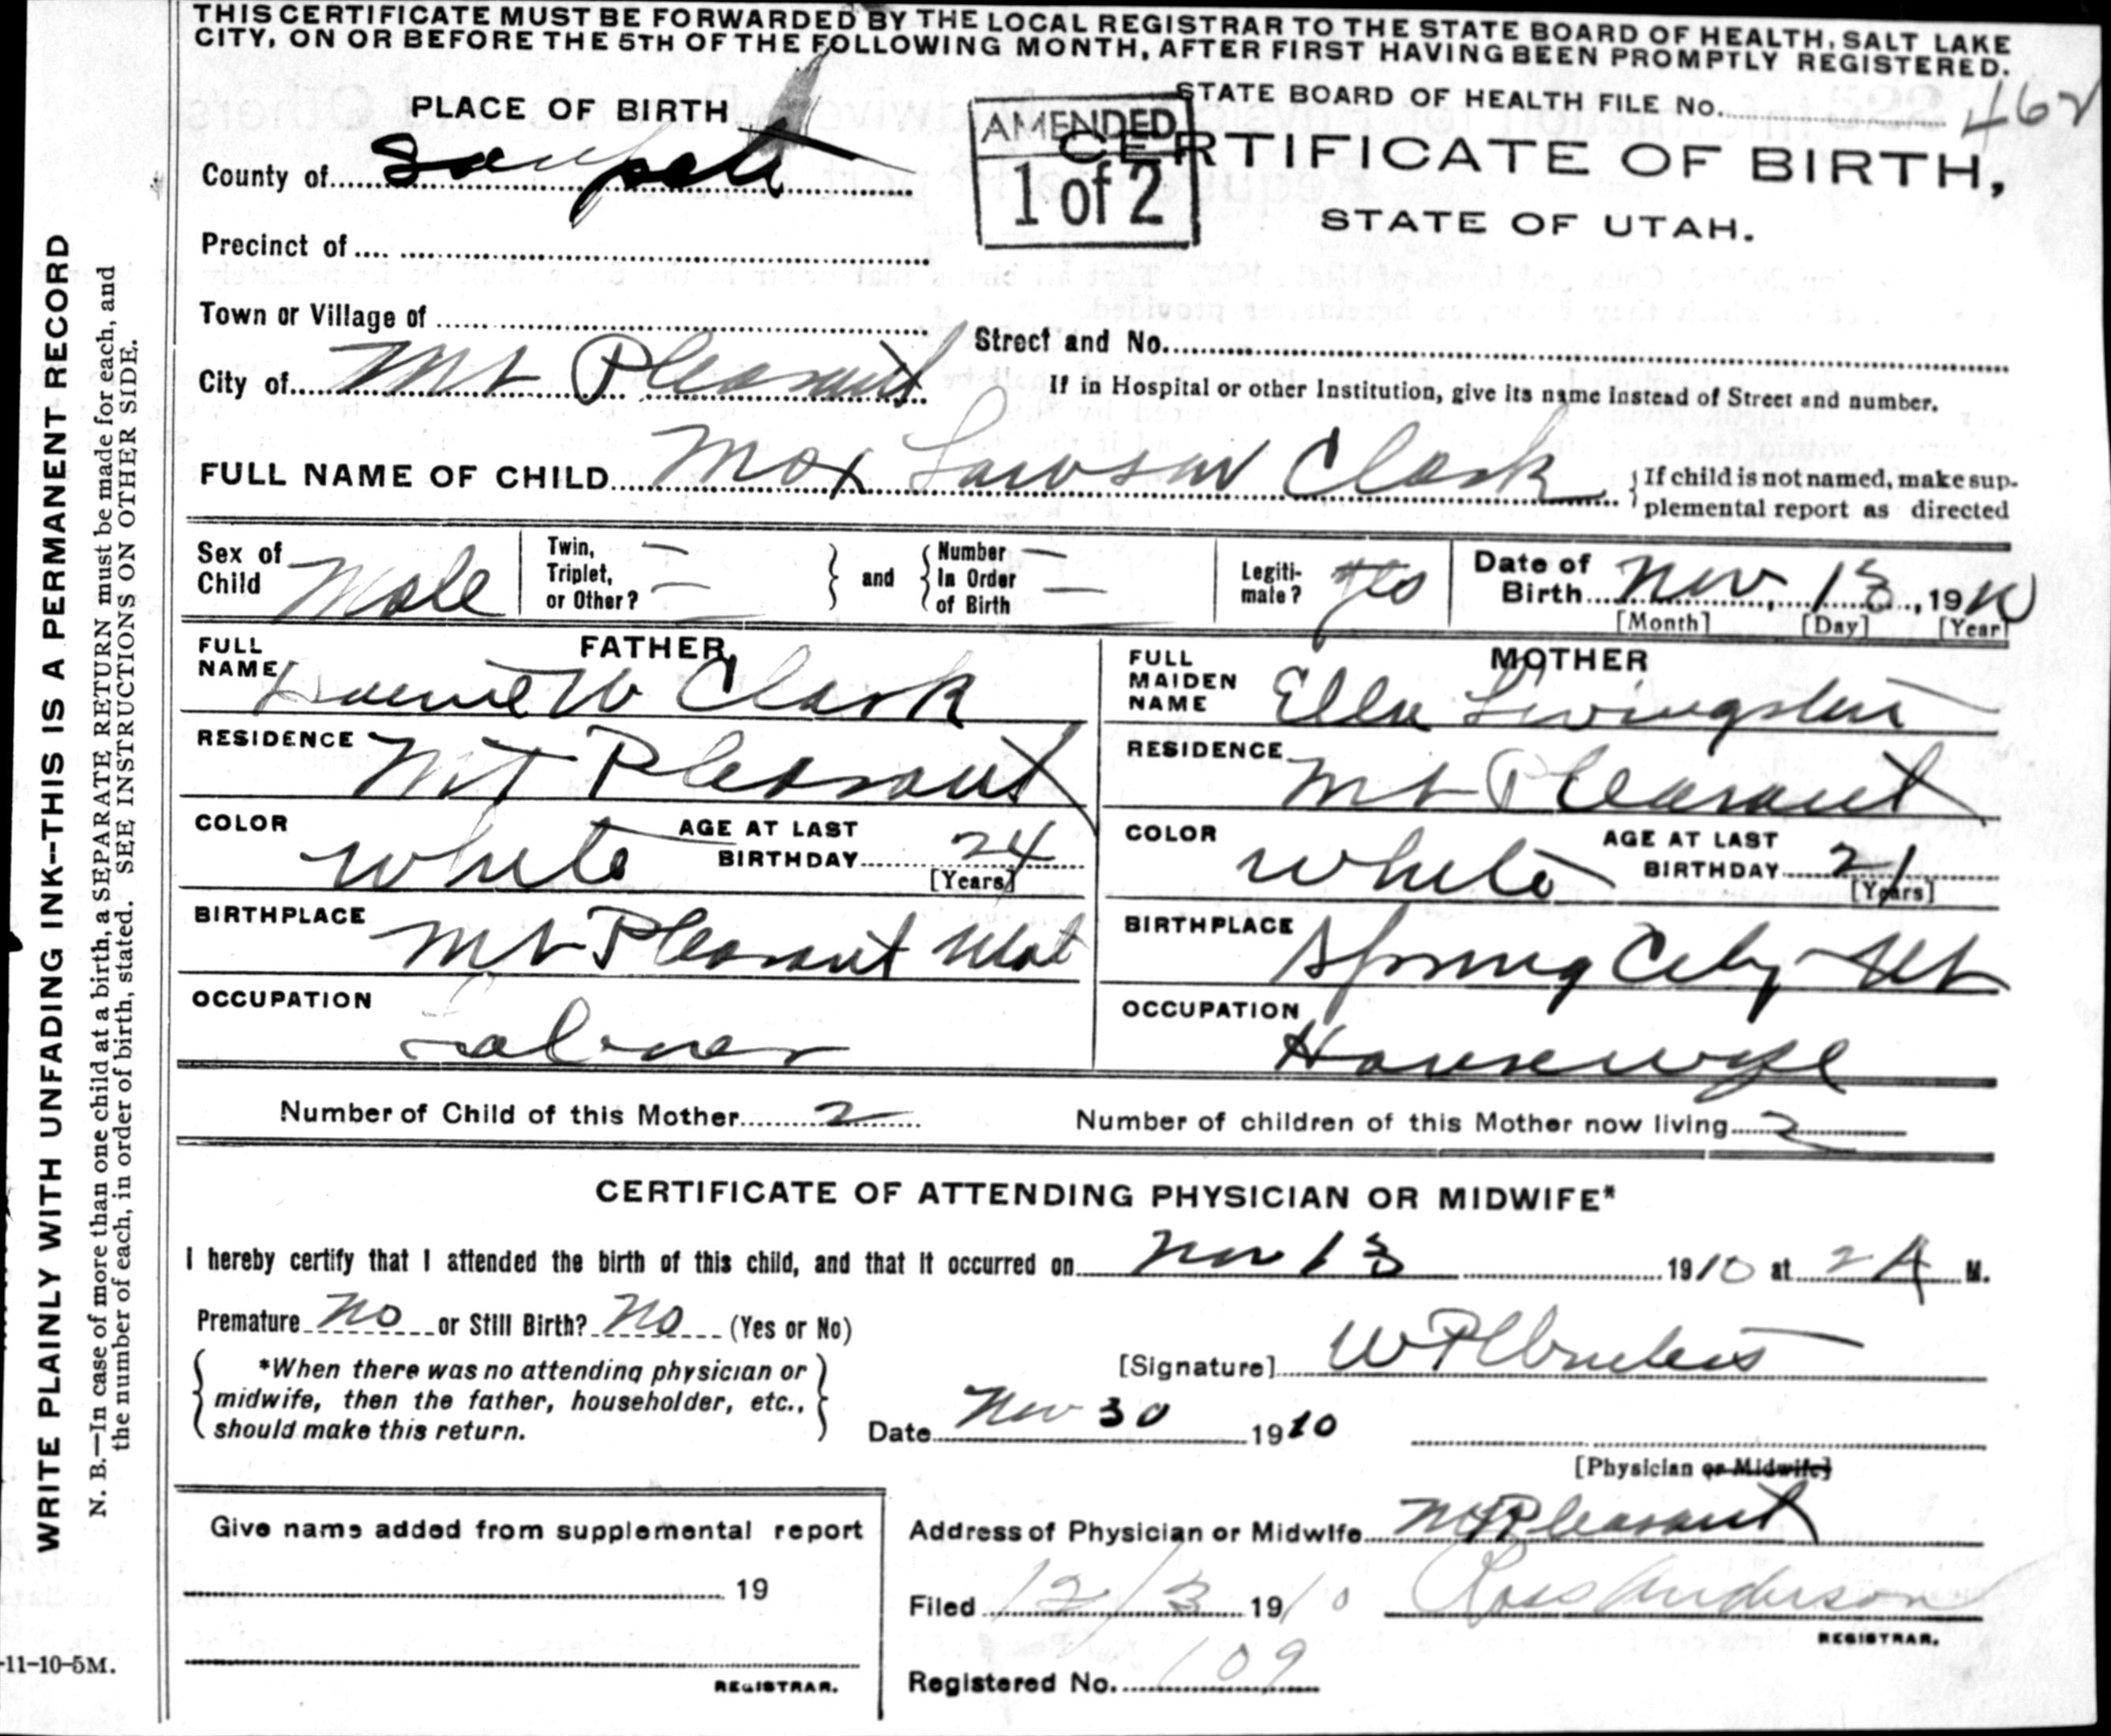 THIS CERTIFICATE MUST BE FORWARDED BY THE LOCAL REGISTRAR TO THE STATE BOARD OF HEALTH, SALT LAKE
CITY, ON OR BEFORE THE 5TH OF THE FOLLOWING MONTH, AFTER FIRST HAVING BEEN PROMPTLY REGISTERED.
WRITE PLAINLY WITH UNFADING INK--THIS IS A PERMANENT RECORD
N. B.—In case of more than one child at a birth, a SEPARATE RETURN must be made for each, and
the number of each, in order of birth, stated. SEE INSTRUCTIONS ON OTHER SIDE.
PLACE OF BIRTH
STATE BOARD OF HEALTH FILE No. 462
AMENDED
1 of 2
CERTIFICATE OF BIRTH,
STATE OF UTAH.
County of Sanpete
Precinct of
Town or Village of
Street and No.
City of Mt Pleasant
If in Hospital or other Institution, give its name instead of Street and number.
FULL NAME OF CHILD Max Lawson Clark
{If child is not named, make sup-
plemental report as directed
Sex of Child Male
Twin, Triplet, or Other? —
and
Number In Order of Birth —
Legiti-mate? Yes
Date of Birth Nov 13, 1910
[Month] [Day] [Year]
FATHER
FULL NAME W Clark
RESIDENCE Mt Pleasant
COLOR White
AGE AT LAST BIRTHDAY 24
[Years]
BIRTHPLACE Mt Pleasant Utah
OCCUPATION Laborer
MOTHER
FULL MAIDEN NAME Ella Livingston
RESIDENCE Mt Pleasant
COLOR White
AGE AT LAST BIRTHDAY 21
[Years]
BIRTHPLACE Spring City Ut
OCCUPATION Housewife
Number of Child of this Mother 2
Number of children of this Mother now living 2
CERTIFICATE OF ATTENDING PHYSICIAN OR MIDWIFE*
I hereby certify that I attended the birth of this child, and that it occurred on Nov 13 1910 at 2 A M.
Premature No or Still Birth? No (Yes or No)
*When there was no attending physician or
midwife, then the father, householder, etc.,
should make this return.
[Signature]
Date Nov 30 1910
[Physician or Midwife]
Give name added from supplemental report
19
REGISTRAR.
Address of Physician or Midwife Mt Pleasant
Filed 12/3 1910 Anderson
REGISTRAR.
Registered No. 109
-11-10-5M.